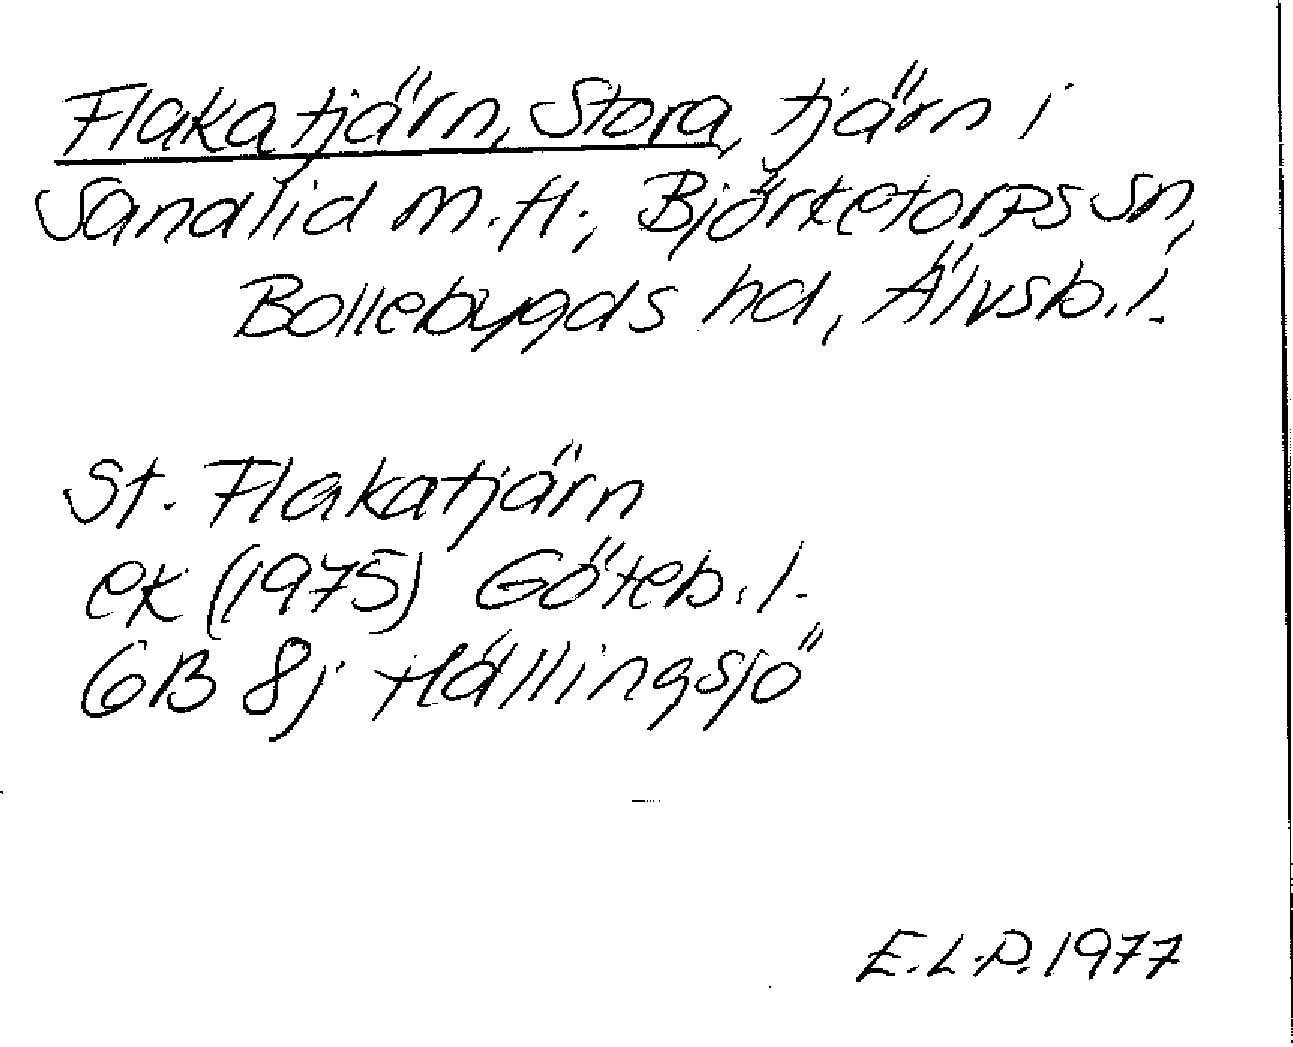 Flakatjärn, Stora, tjärn i
Sandlid m.fl., Björketorps sn,
Bollebygds hd, Älvsb.l.
St. Flakatjärn
ek (1975) Göteb.l.
6B 8j Hällingsjö
E.L.P. 1977